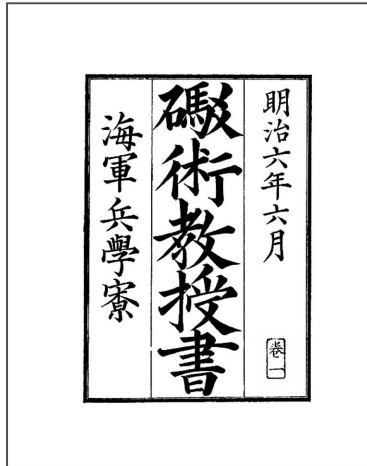 明治六年六月
卷一
礮術教授書
海軍兵學寮